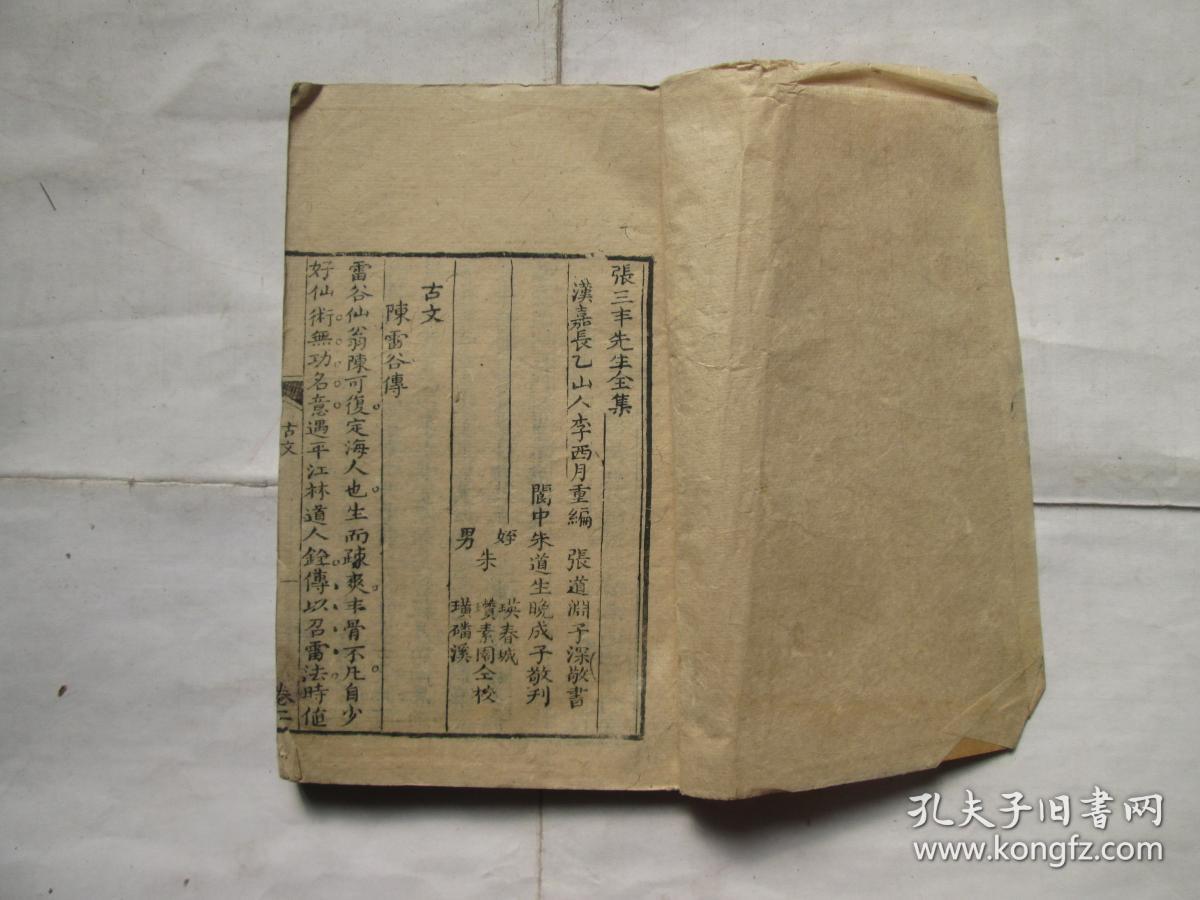 張三丰先生全集
漢嘉長乙山人李西月重編 張道淵子深敬書
閬中朱道生曉成子敬刊
姪 瑛春城
朱 瓚素園仝校
男 璜磻溪
古文
陳雷谷傳
雷谷仙翁陳可復定海人也生而疎爽丰骨不凡自少
好仙術無功名意遇平江林道人銓傳以召雷法時值
古文
一
卷二
孔夫子旧书网
www.kongfz.com